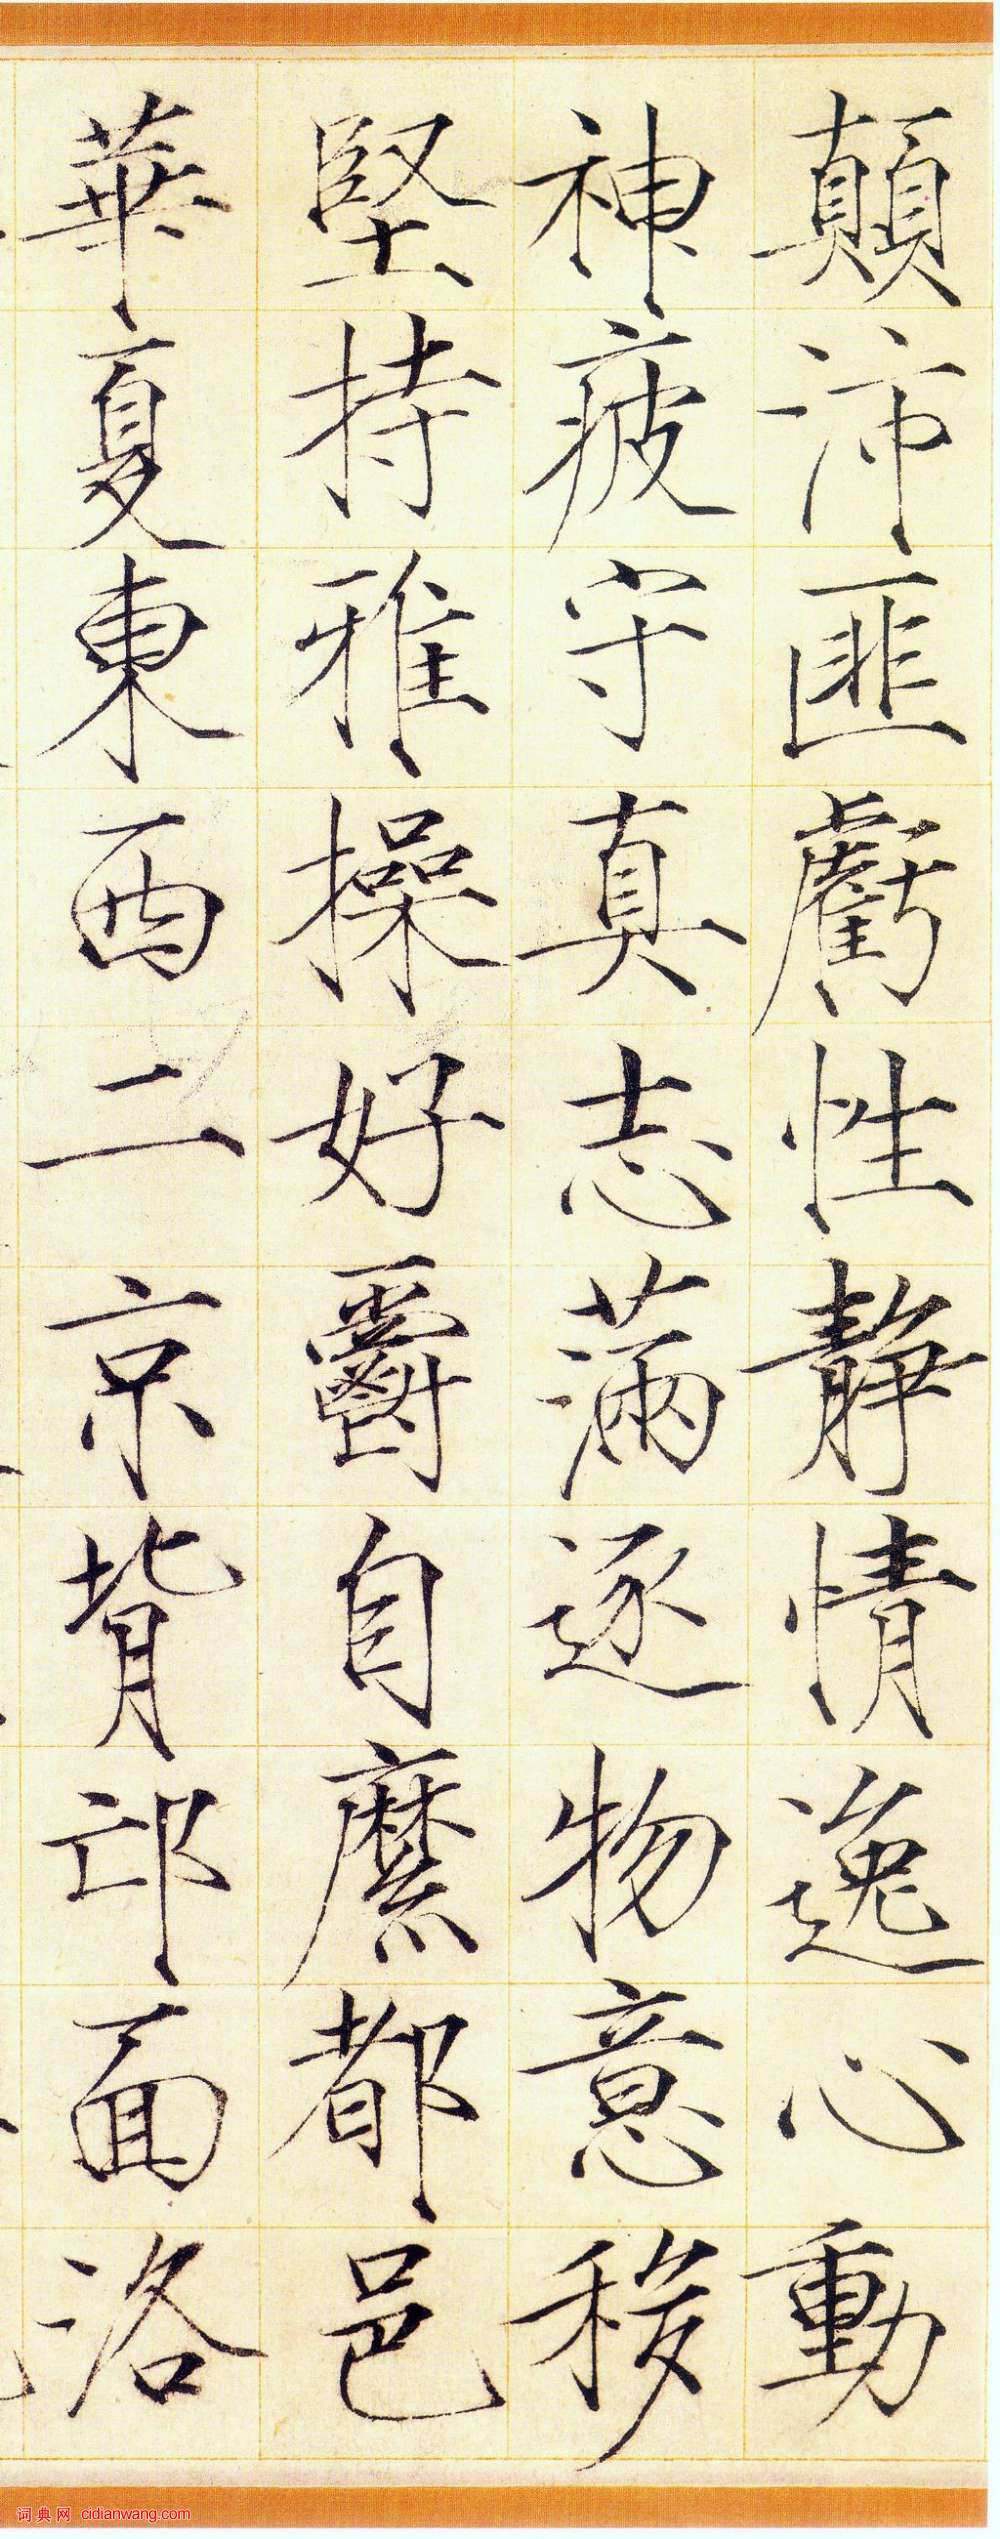 顛沛匪虧性靜情逸心動
神疲守真志滿逐物意移
堅持雅操好爵自縻都邑
華夏東西二京背邙面洛
词典网 cidianwang.com